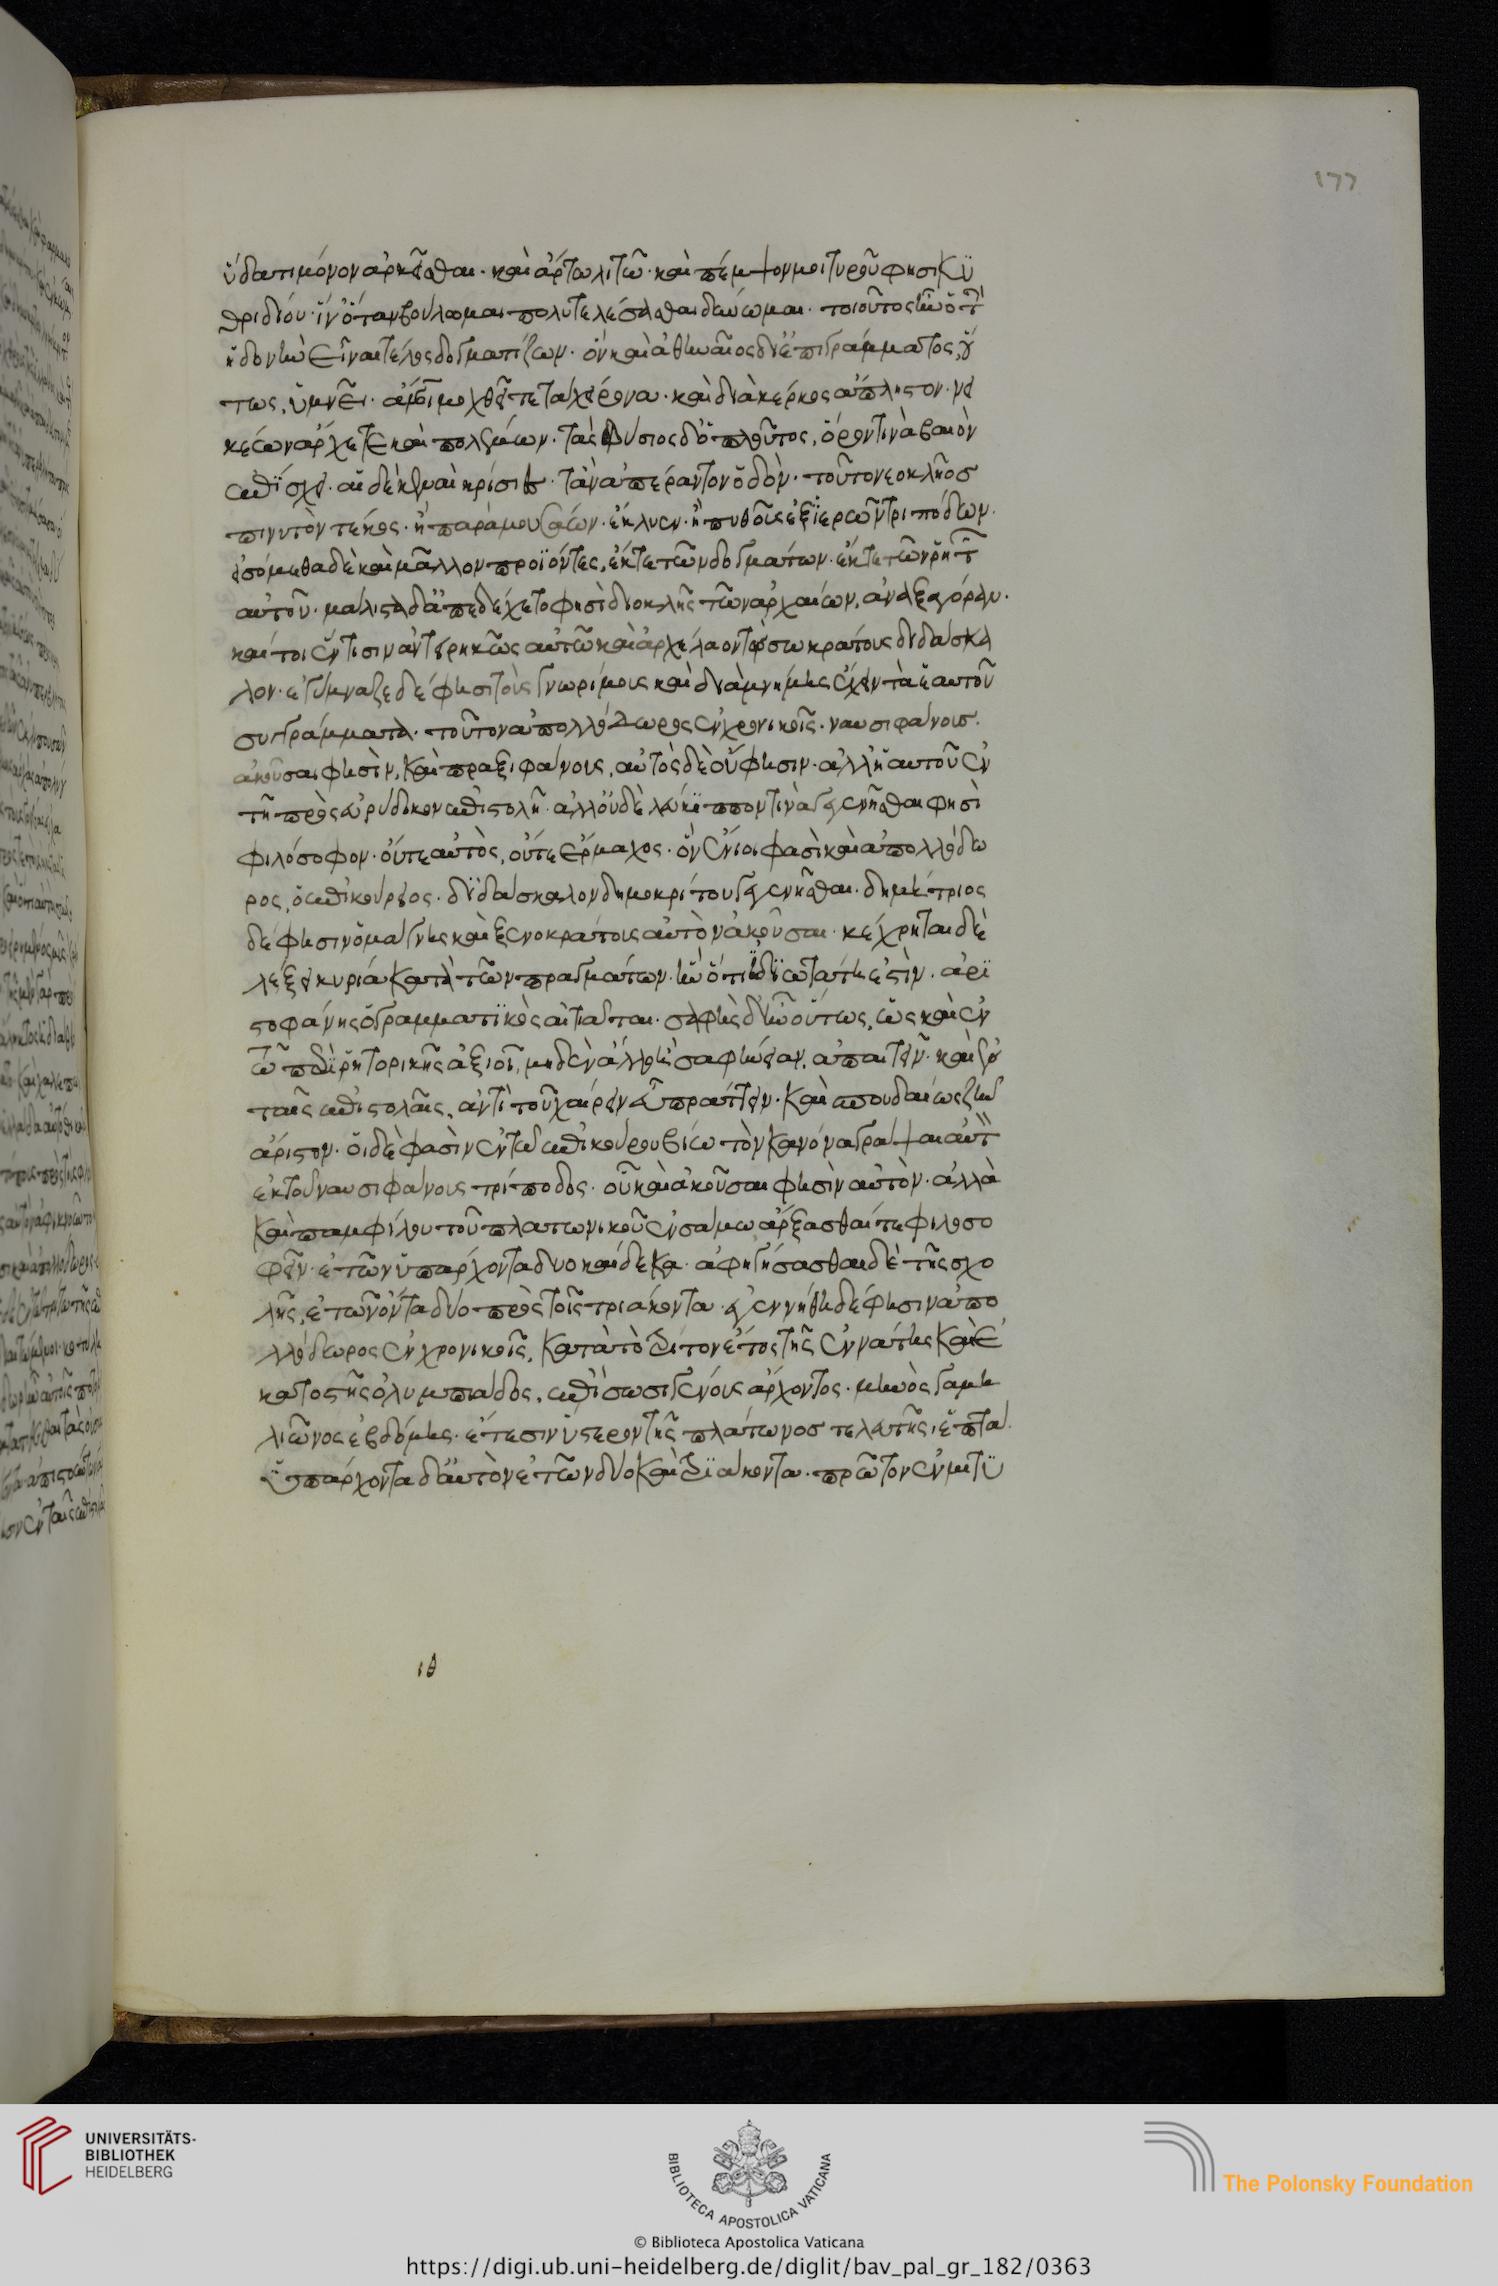 177
ὕδατι μόνον ἀρκεῖσθαι. καὶ ἄρτω λιτῶ. καὶ πέμψον μοι τυροῦ φησὶ κυ
θριδίου. ἵν' ὅταν βούλωμαι πολυτελεύσασθαι δυνωμαι. τοιοῦτος ἦν ὁ τ(ὴν)
ἡδονὴν εἶναι τέλος δογματίζων. ὃν καὶ ἀθήναιος δι' ἐπιγράμματος, οὕ
τως, ὑμνεῖ. ἄνθρωποι μοχθεῖτε τὰ χείρονα. καὶ διὰ κέρδος ἄπληστον. νει
κέων ἄρχετε καὶ πολέμων. τᾶς φύσιος δ' ὁ πλοῦτος, ὅρον τινὰ βαιὸν
ἐπίσχει. αἱ δὲ κεναὶ κρίσιες. τὰν ἀπέραντον ὁδὸν. τοῦτο νεοκλῆος
πινυτὸν τέκος. ἢ παρὰ μουσαίων. ἔκλυεν. ἢ πυθοῦς ἐξ ἱερῶν τριπόδων.
εἰσόμεθα δὲ καὶ μᾶλλον προϊόντες, ἔκ τε τῶν δογμάτων. ἔκ τε τῶν ῥητ(ῶν)
αὐτοῦ. μάλιστα δ' ἀπεδέχετο φησὶ διοκλῆς τῶν ἀρχαίων, ἀναξαγόραν.
καί τοι ἔν τισιν ἀντειρηκὼς αὐτῶ καὶ ἀρχέλαον τὸν σωκράτους διδάσκα
λον. ἐγύμναζε δέ φησι τοὺς γνωρίμους καὶ διὰ μνήμης ἔχειν τὰ ἑαυτοῦ
συγγράμματα. τοῦτον ἀπολλόδωρος ἐν χρονικοῖς. ναυσιφάνους.
ἀκοῦσαι φησὶν, καὶ πραξιφάνους, αὐτὸς δὲ οὔ φησιν. ἀλλ' ἑαυτοῦ ἐν
τῆ πρὸς εὐρύδικον ἐπιστολῆ. ἀλλ' οὐδὲ λεύκιππον τινὰ γεγενῆσθαι φησὶ
φιλόσοφον. οὔτε αὐτὸς, οὔτε ἕρμαχος. ὃν ἔνιοι φασὶ καὶ ἀπολλόδω
ρος, ὁ ἐπικούρειος. διδάσκαλον δημοκρίτου γεγενῆσθαι. δημήτριος
δέ φησιν ὁ μάγνης καὶ ξενοκράτους αὐτὸν ἀκοῦσαι. κέχρηται δὲ
λέξει κυρία κατὰ τῶν πραγμάτων. ἣν ὅτι ἰδιωτάτη ἐστὶν. ἀρι
στοφάνης ὁ γραμματικὸς αἰτιᾶται. σαφὴς δ' ἦν οὕτως, ὡς καὶ ἐν
τῶ περὶ ῥητορικῆς ἀξιοῖ, μηδὲν ἄλλο ἢ σαφήνειαν, ἀπαιτεῖν. καὶ ἐν
ταῖς ἐπιστολαῖς, ἀντὶ τοῦ χαίρειν εὖ πράττειν. καὶ σπουδαίως ζῆν
ἄριστον. οἱ δὲ φασὶν ἐν τῶ ἐπικούρου βίω τὸν κανόνα γράψαι αὐτ(ὸν)
ἐκ τοῦ ναυσιφάνους τρίποδος. οὗ καὶ ἀκοῦσαι φησὶν αὐτὸν. ἀλλὰ
καὶ παμφίλου τοῦ πλατωνικοῦ ἐν σάμω ἄρξασθαί τε φιλοσο
φεῖν. ἐτῶν ὑπάρχοντα δυοκαίδεκα. ἀφηγήσασθαι δὲ τῆς σχο
λῆς, ἐτῶν ὄντα δύο πρὸς τοῖς τριάκοντα. ἐγεννήθη δέ φησιν ἀπο
λλόδωρος ἐν χρονικοῖς, κατὰ τὸ τρίτον ἔτος τῆς ἐννάτης καὶ ἑ
κατοστῆς ὀλυμπιάδος, ἐπὶ σωσιγένους ἄρχοντος. μηνὸς γαμη
λιῶνος ἑβδόμης. ἔτεσιν ὕστερον τῆς πλάτωνος τελευτῆς, ἑπτά.
ὑπάρχοντα δ' αὐτὸν ἐτῶν δύο καὶ τριάκοντα. πρῶτον ἐν μιτυ
ιθ
UNIVERSITÄTS-
BIBLIOTHEK
HEIDELBERG
BIBLIOTECA APOSTOLICA VATICANA
The Polonsky Foundation
© Biblioteca Apostolica Vaticana
https://digi.ub.uni-heidelberg.de/diglit/bav_pal_gr_182/0363